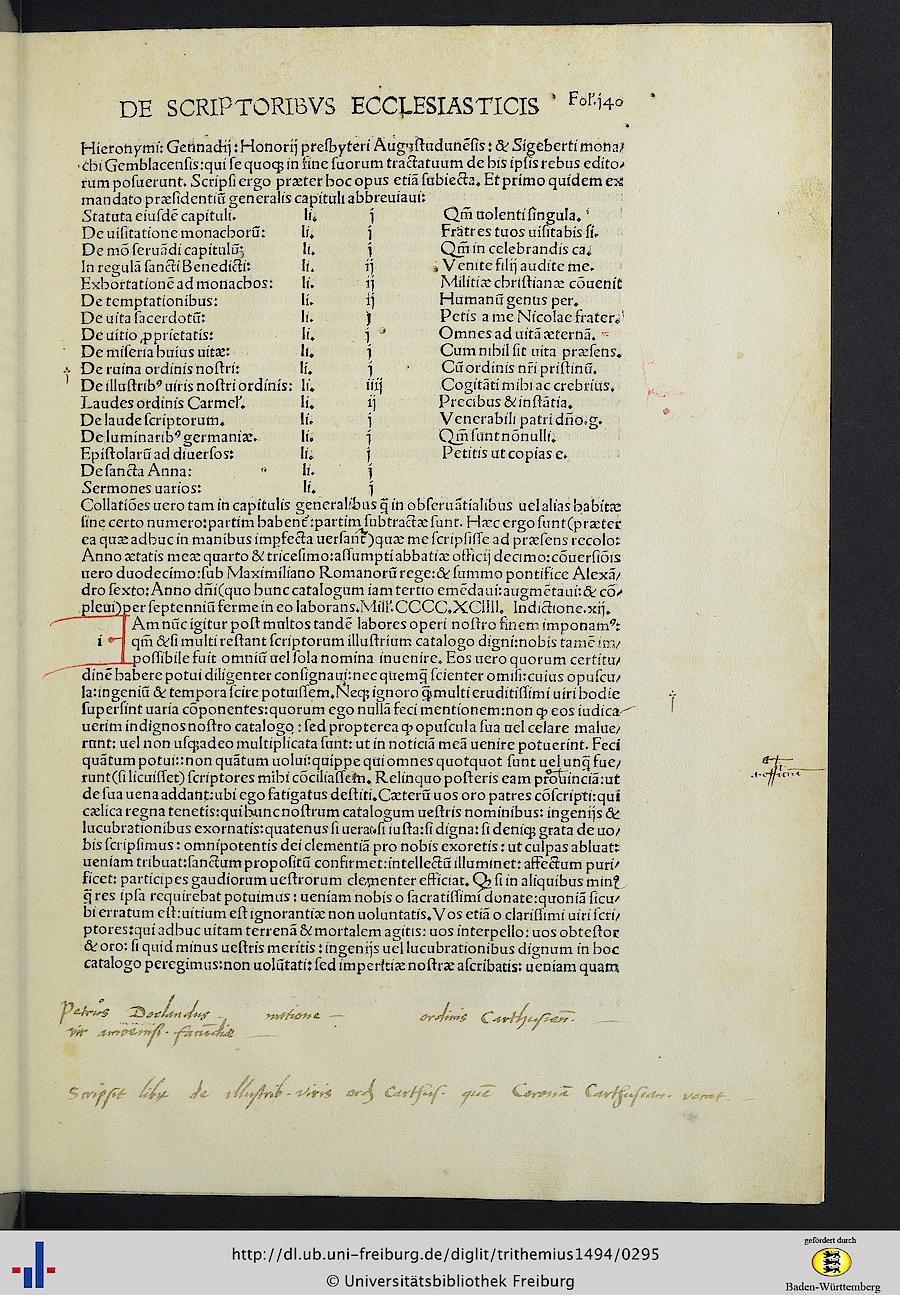 DE SCRIPTORIBVS ECCLESIASTICIS Fol'.140
Hieronymi: Gennadij: Honorij presbyteri Augustudunēsis: & Sigeberti mona/
chi Gemblacensis: qui se quoqȝ in fine suorum tractatuum de his ipsis rebus edito/
rum posuerunt. Scripsi ergo præter hoc opus etiā subiecta. Et primo quidem ex
mandato præsidentiū generalis capituli abbreuiaui:
Statuta eiusdē capituli. li. j Qm̄ uolenti singula.
De uisitatione monachorū: li. j Fratres tuos uisitabis si.
De mō seruādi capitulū: li. j Qm̄ in celebrandis ca.
In regulā sancti Benedicti: li. ij Venite filij audite me.
Exhortationē ad monachos: li. ij Militiæ christianæ cōuenit
De temptationibus: li. ij Humanū genus per.
De uita sacerdotū: li. j Petis a me Nicolae frater.
De uitio ꝓprietatis: li. j Omnes ad uitā æternā.
De miseria huius uitæ: li. j Cum nihil sit uita præsens.
De ruina ordinis nostri: li. j Cū ordinis nr̄i pristinū.
De illustribꝰ uiris nostri ordinis: li. iiij Cogitāti mihi ac crebrius.
Laudes ordinis Carmel'. li. ij Precibus & instātia.
De laude scriptorum. li. j Venerabili patri dn̄o.g.
De luminaribꝰ germaniæ. li. j Qm̄ sunt nōnulli.
Epistolarū ad diuersos: li. j Petitis ut copias e.
De sancta Anna: li. j
Sermones uarios: li. j
Collatiōes uero tam in capitulis generalibus q̄ in obseruātialibus uel alias habitæ
sine certo numero: partim habent': partim subtractæ sunt. Hæc ergo sunt (præter
ea quæ adhuc in manibus imꝑfecta uersant') quæ me scripsisse ad præsens recolo:
Anno ætatis meæ quarto & tricesimo: assumpti abbatiæ officij decimo: cōuersiōis
uero duodecimo: sub Maximiliano Romanorū rege: & summo pontifice Alexā/
dro sexto: Anno dn̄i (quo hunc catalogum iam tertio emēdaui: augmētaui: & cō/
pleui) per septenniū ferme in eo laborans. Mill'. CCCC. XCIIII. Indictione. xij.
i Am nūc igitur post multos tandē labores operi nostro finem imponamꝰ:
qm̄ & si multi restant scriptorum illustrium catalogo digni: nobis tamē im/
possibile fuit omniū uel sola nomina inuenire. Eos uero quorum certitu/
dinē habere potui diligenter consignaui: nec quemq̄ scienter omisi: cuius opuscu/
la: ingeniū & tempora scire potuissem. Neqȝ ignoro q̄ multi eruditissimi uiri hodie
supersint uaria cōponentes: quorum ego nullā feci mentionem: non ꝙ eos iudica
uerim indignos nostro catalogo: sed propterea ꝙ opuscula sua uel celare malue/
runt: uel non usqȝ adeo multiplicata sunt: ut in noticiā meā uenire potuerint. Feci
quātum potui: non quātum uolui: quippe qui omnes quotquot sunt uel unq̄ fue/
runt (si licuisset) scriptores mihi cōciliassem. Relinquo posteris eam prouinciā: ut
de sua uena addant: ubi ego fatigatus destiti. Cæterū uos oro patres cōscripti: qui
cælica regna tenetis: qui hunc nostrum catalogum uestris nominibus: ingenijs &
lucubrationibus exornatis: quatenus si uera: si iusta: si digna: si deniqȝ grata de uo/
bis scripsimus: omnipotentis dei clementiā pro nobis exoretis: ut culpas abluat:
ueniam tribuat: sanctum propositū confirmet: intellectū illuminet: affectum puri/
ficet: participes gaudiorum uestrorum clementer efficiat. Qȝ si in aliquibus minꝰ
q̄ res ipsa requirebat potuimus: ueniam nobis o sacratissimi donate: quoniā sicu/
bi erratum est: uitium est ignorantiæ non uoluntatis. Vos etiā o clarissimi uiri scri/
ptores: qui adhuc uitam terrenā & mortalem agitis: uos interpello: uos obtestor
& oro: si quid minus uestris meritis: ingenijs uel lucubrationibus dignum in hoc
catalogo peregimus: non uolūtati: sed imperitiæ nostræ ascribatis: ueniam quam
Petrus Dorlandus natione ordinis Carthusien̄.
vir amoeniss. facundiæ
Scripsit libr de illustrib. viris ord Carthus. quē Coronā Carthusian. vocat.
http://dl.ub.uni-freiburg.de/diglit/trithemius1494/0295
© Universitätsbibliothek Freiburg
gefördert durch
Baden-Württemberg